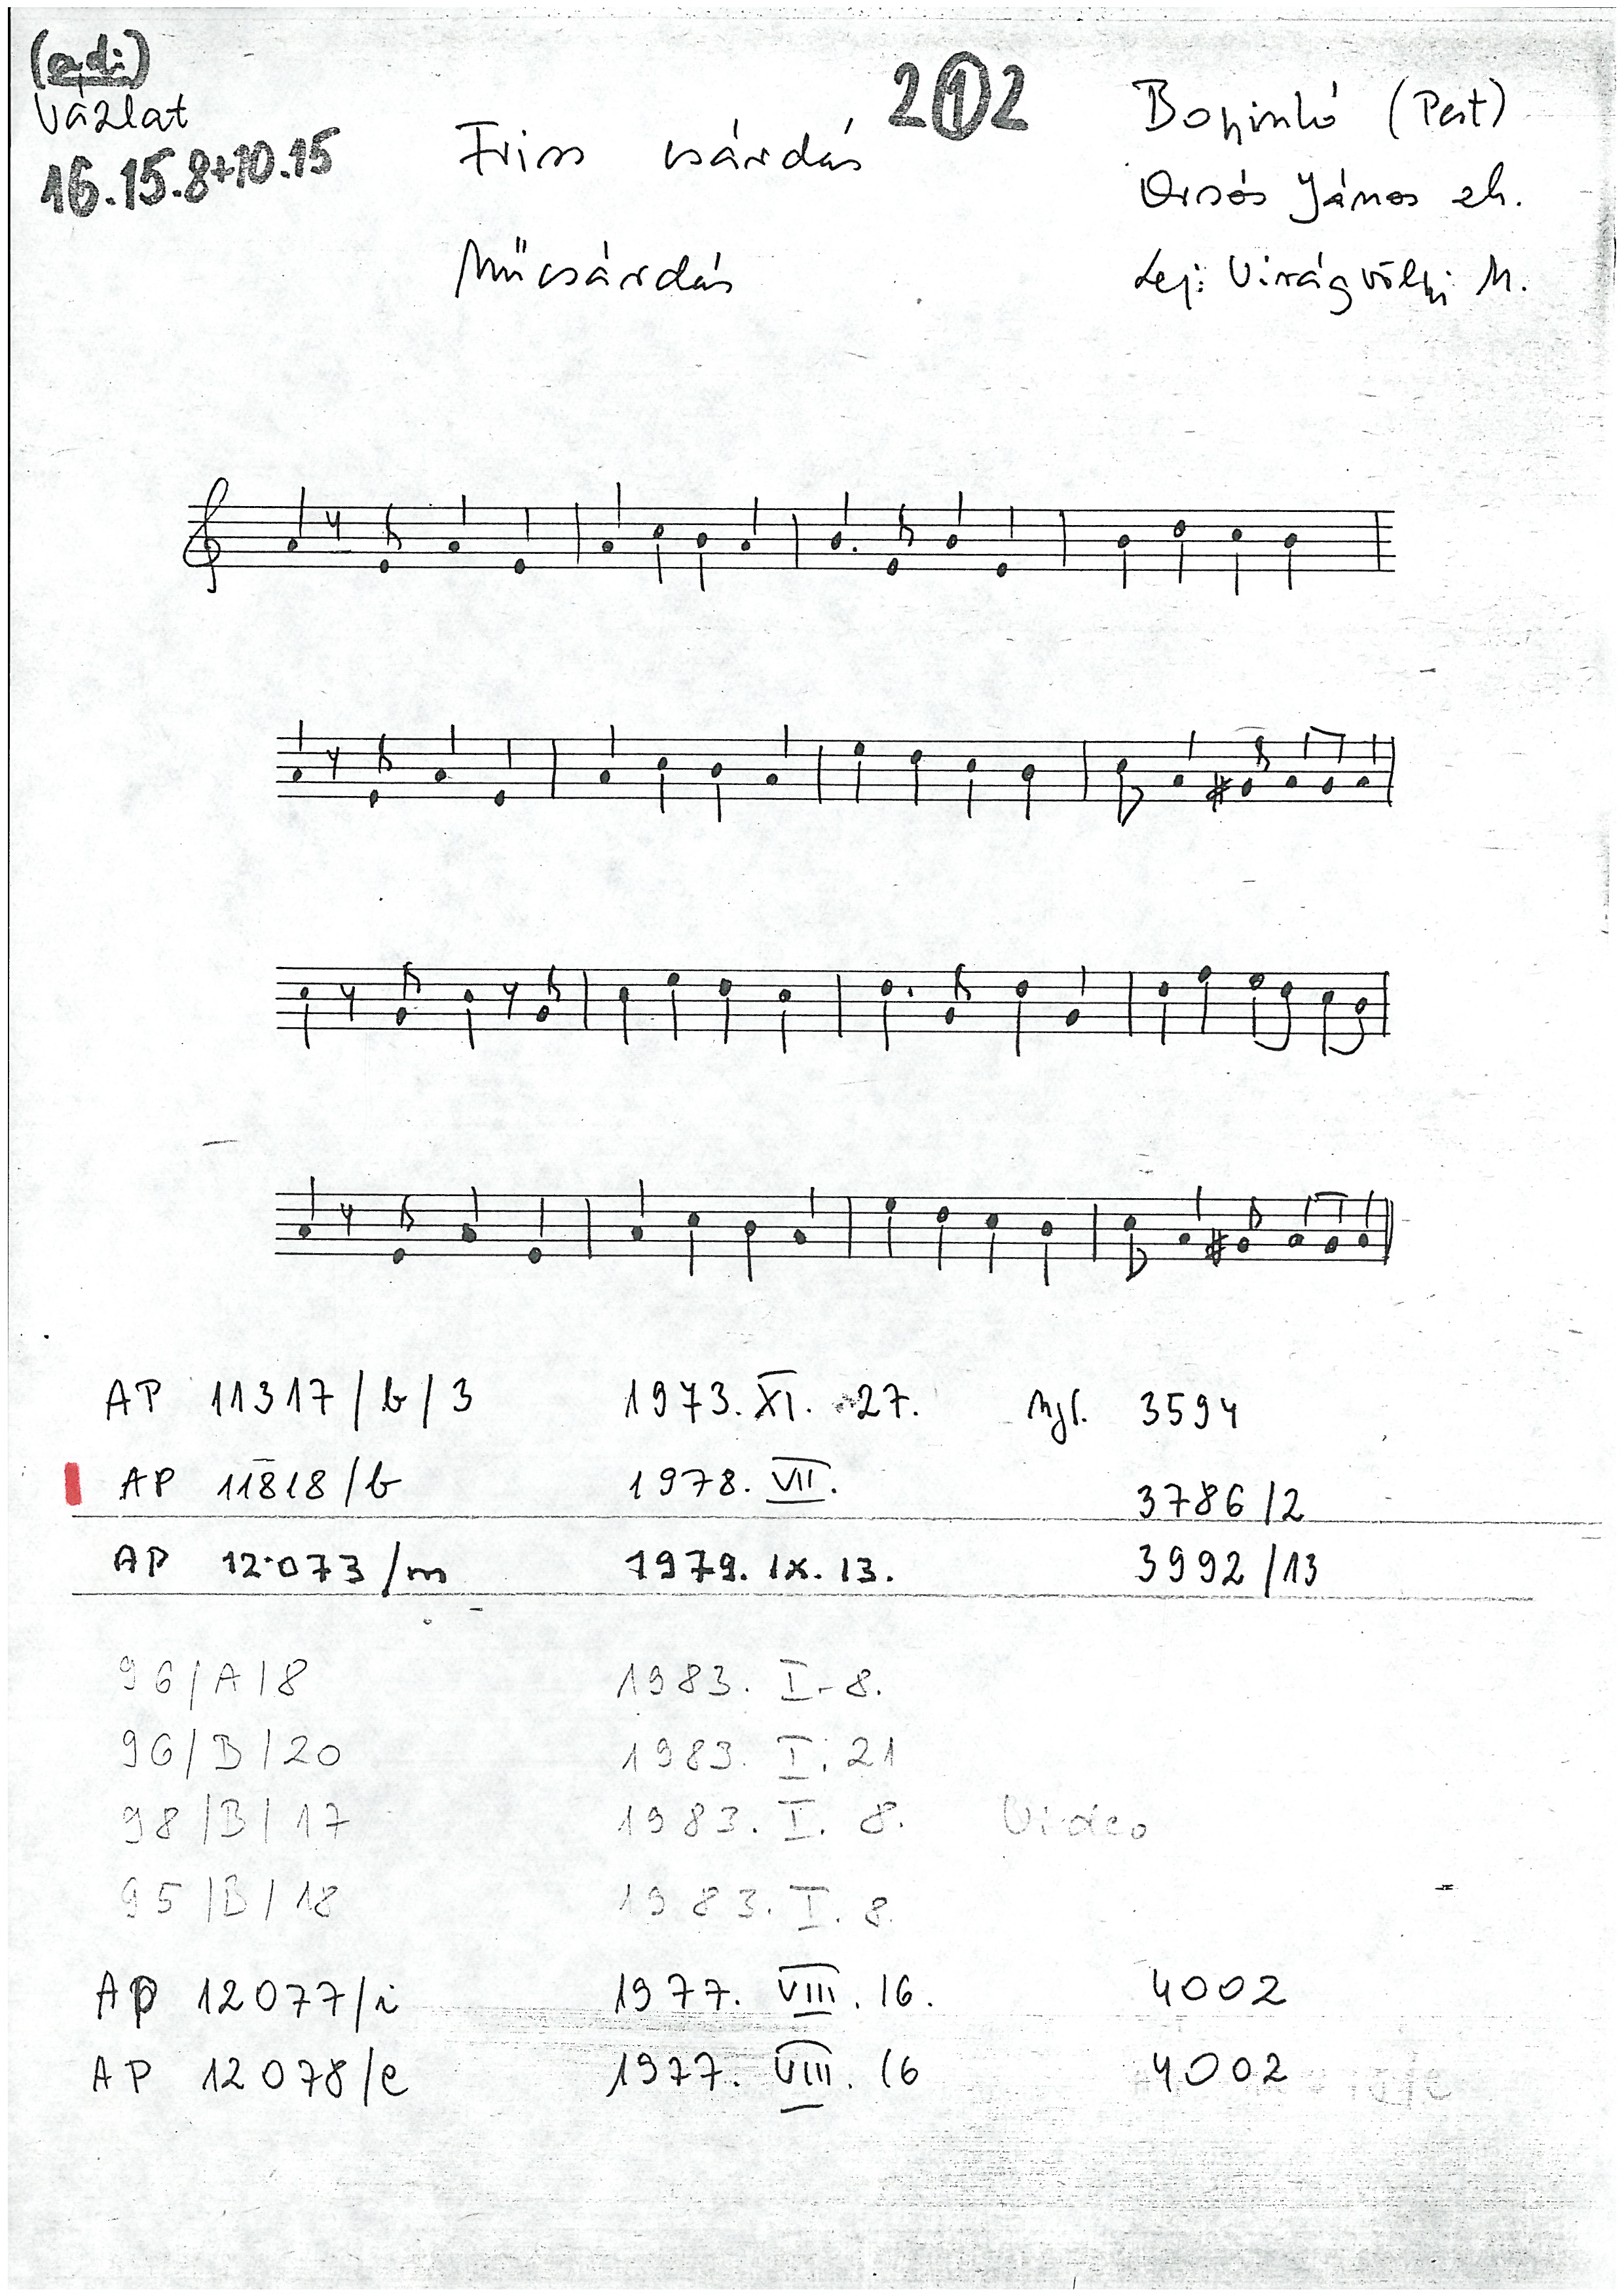 (adi)
Vázlat
16.15.8+10.15
Friss csárdás
Műcsárdás
2 1 2
(Pest)
Orsós János zk.
Lej: Virágvölgyi M.
AP 11317/b/3 1973. XI. 27. Mgt. 3594
AP 11818/b 1978. VII. 3786/2
AP 12073/m 1979. IX. 13. 3992/13
96/A/8 1983. I. 8.
96/B/20 1983. I. 21
98/B/17 1983. I. 8. Video
95/B/18 1983. I. 8.
AP 12077/i 1977. VIII. 16. 4002
AP 12078/e 1977. VIII. 16 4002